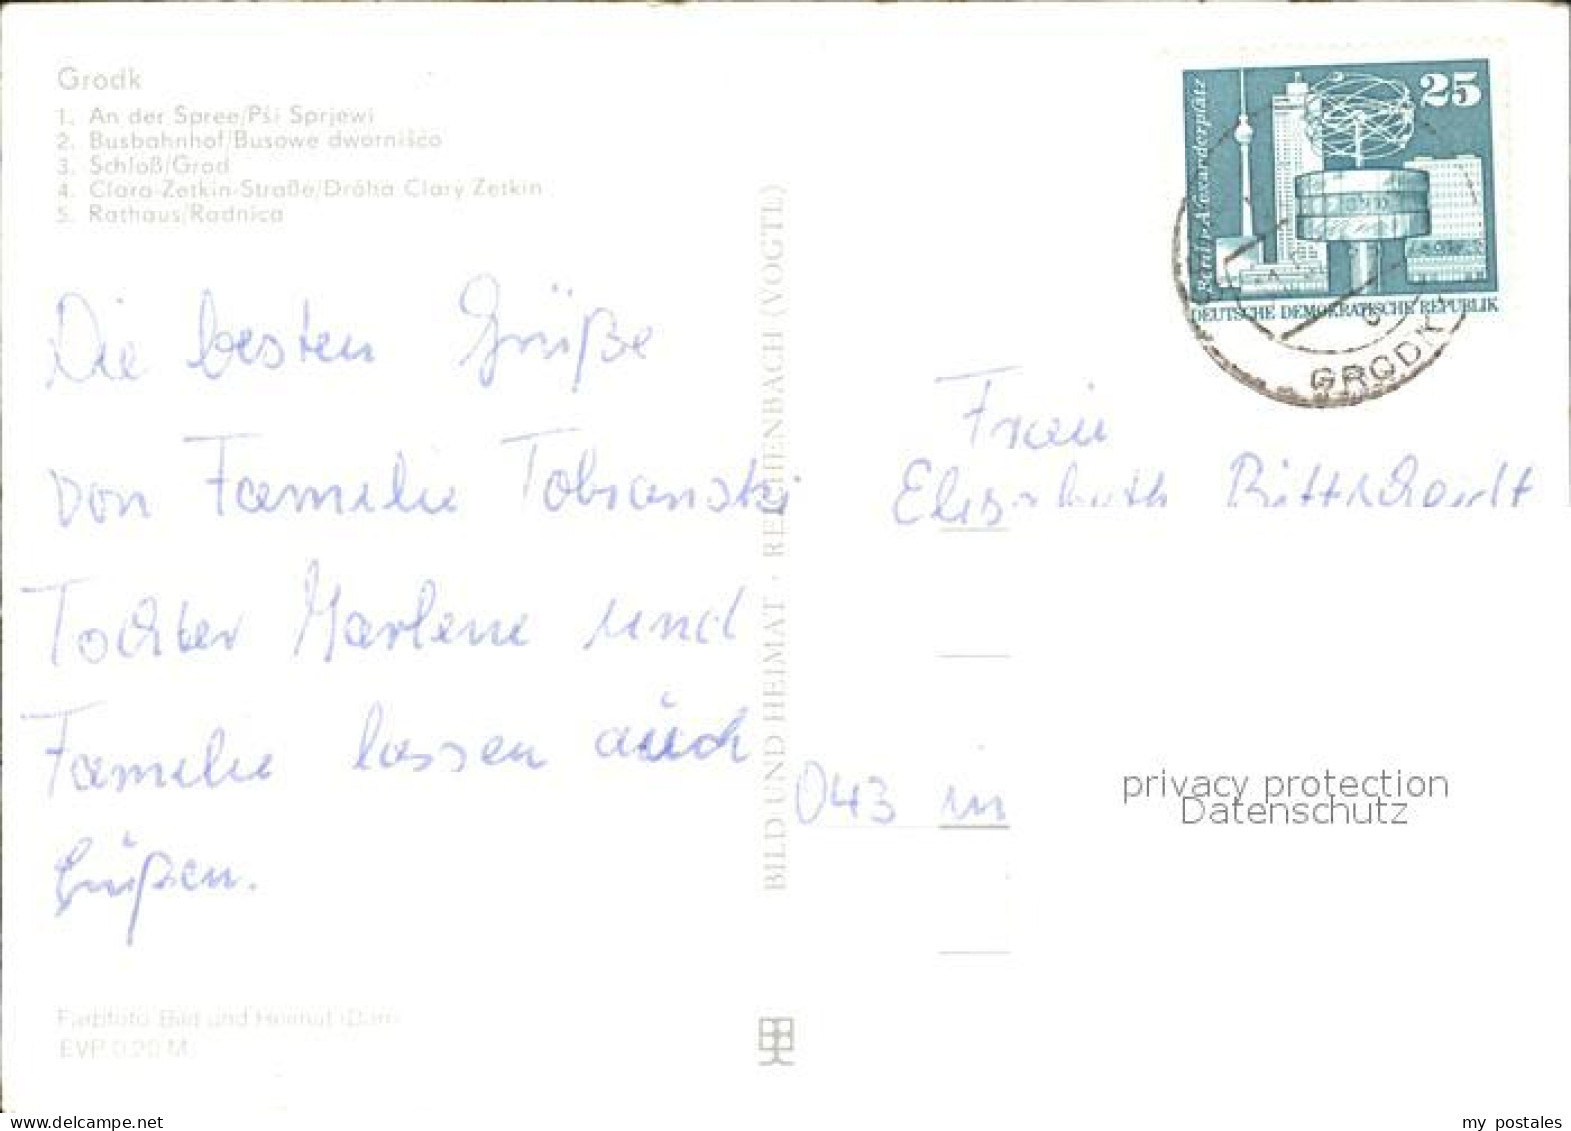 Grodk
1. An der Spree/Pśi Sprjewi
2. Busbahnhof/Busowe dwornišćo
3. Schloß/Grod
4. Clara-Zetkin-Straße/Dróha Clary Zetkin
5. Rathaus/Radnica
Die besten Grüße
von Familie
Tochter Marlene und
Familie lassen auch
Grüßen.
Farbfoto Bild und Heimat
EVP 0,20 M
BILD UND HEIMAT · REICHENBACH (VOGTL)
25
Berlin-Alexanderplatz
DEUTSCHE DEMOKRATISCHE REPUBLIK
GRODK
Frau
Elisabeth
043 in
privacy protection
Datenschutz
oldthing.de
my postales